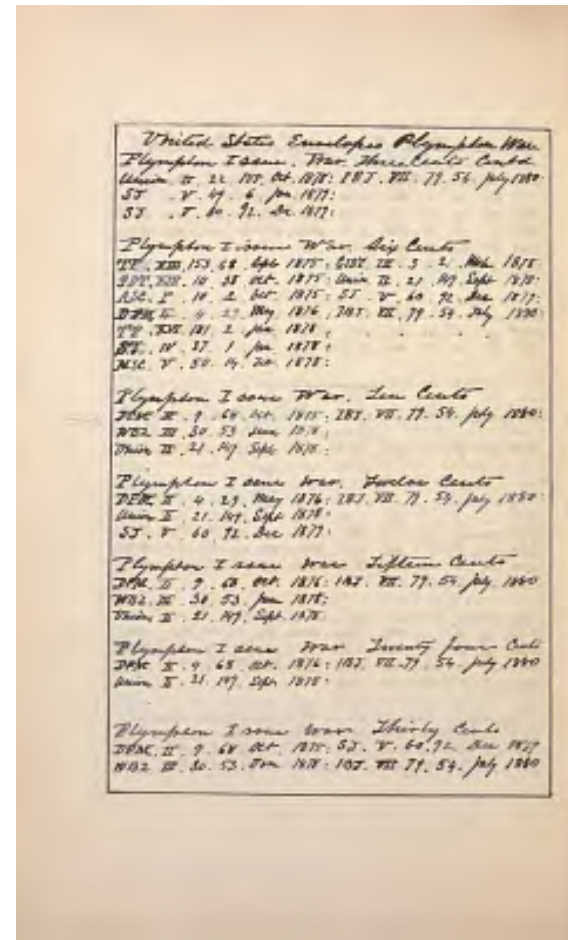 United States Envelopes Plympton War
Plympton Issue. War. Three Cents Contd
Union II. 22. 155. Oct. 1878: IBJ. VII. 79. 54. July 1880.
SJ . V. 49. 6. Jan. 1879:
SJ . V. 60. 92. Dec. 1879:
Plympton Issue War. Six Cents
TP. XIII. 153. 68. Sept. 1875:
10. 38 Oct. 1875: Union II. 21. 149. Sept 1878:
ASC. I. 10. 2. Oct 1875: SJ. V. 60. 92. Dec 1879:
4. 29. May 1876: IBJ. VII. 79. 54. July 1880:
TP. XVI. 181. 2. Jan 1878.
IV. 37. 1. Jan. 1878:
MSC. V. 50. 14. 1878:
Plympton Issue War. Ten Cents
II. 9. 68. Oct. 1875: IBJ. VII. 79. 54. July 1880:
III. 30. 53 1878:
Union II. 21. 149. Sept 1878:
Plympton Issue War. Twelve Cents
II. 4. 29. May 1876: IBJ. VII. 79. 54. July 1880:
Union II. 21. 149. Sept 1878:
SJ. V. 60. 92. Dec 1879:
Plympton Issue War Fifteen Cents
II. 9. 68. Oct. 1876: IBJ. VII. 79. 54. July. 1880
III. 30. 53. Jan 1878:
Union II. 21. 149. Sept. 1878.
Plympton Issue War Twenty four Cents
II. 9. 68. Oct. 1876: IBJ. VII. 79. 54. July 1880
Union II. 21. 149. Sept 1878:
Plympton Issue War Thirty Cents
II. 9. 68 Oct. 1875: SJ. V. 60. 92. Dec 1879
III. 30. 53. Jan 1878: IBJ. VII 79. 54. July 1880